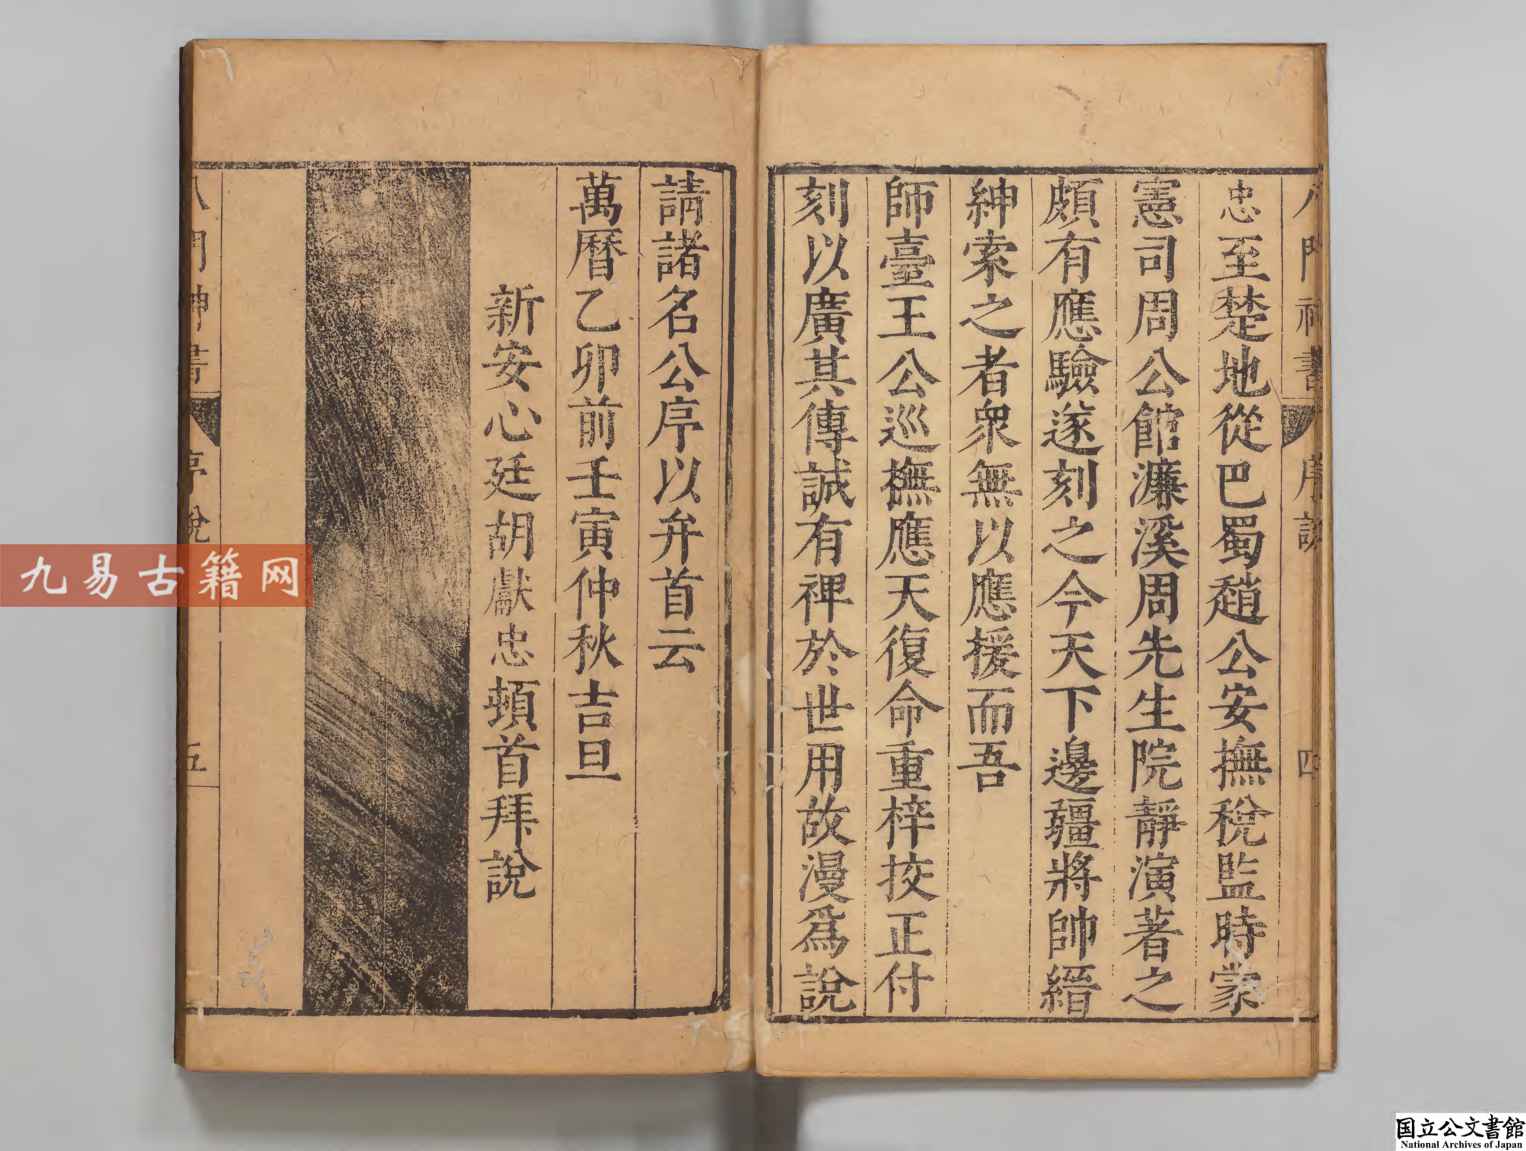 忠至楚地從巴蜀趙公安撫稅監時蒙
憲司周公館濂溪周先生院靜演著之
頗有應驗遂刻之今天下邊疆將帥縉
紳索之者衆無以應援而吾
師臺王公巡撫應天復命重梓挍正付
刻以廣其傳誠有裨於世用故漫爲說
請諸名公序以弁首云
萬曆乙卯前壬寅仲秋吉旦
新安心廷胡獻忠頓首拜說
八門神書 序說 四
八門神書 序說 五
九易古籍网
国立公文書館
National Archives of Japan